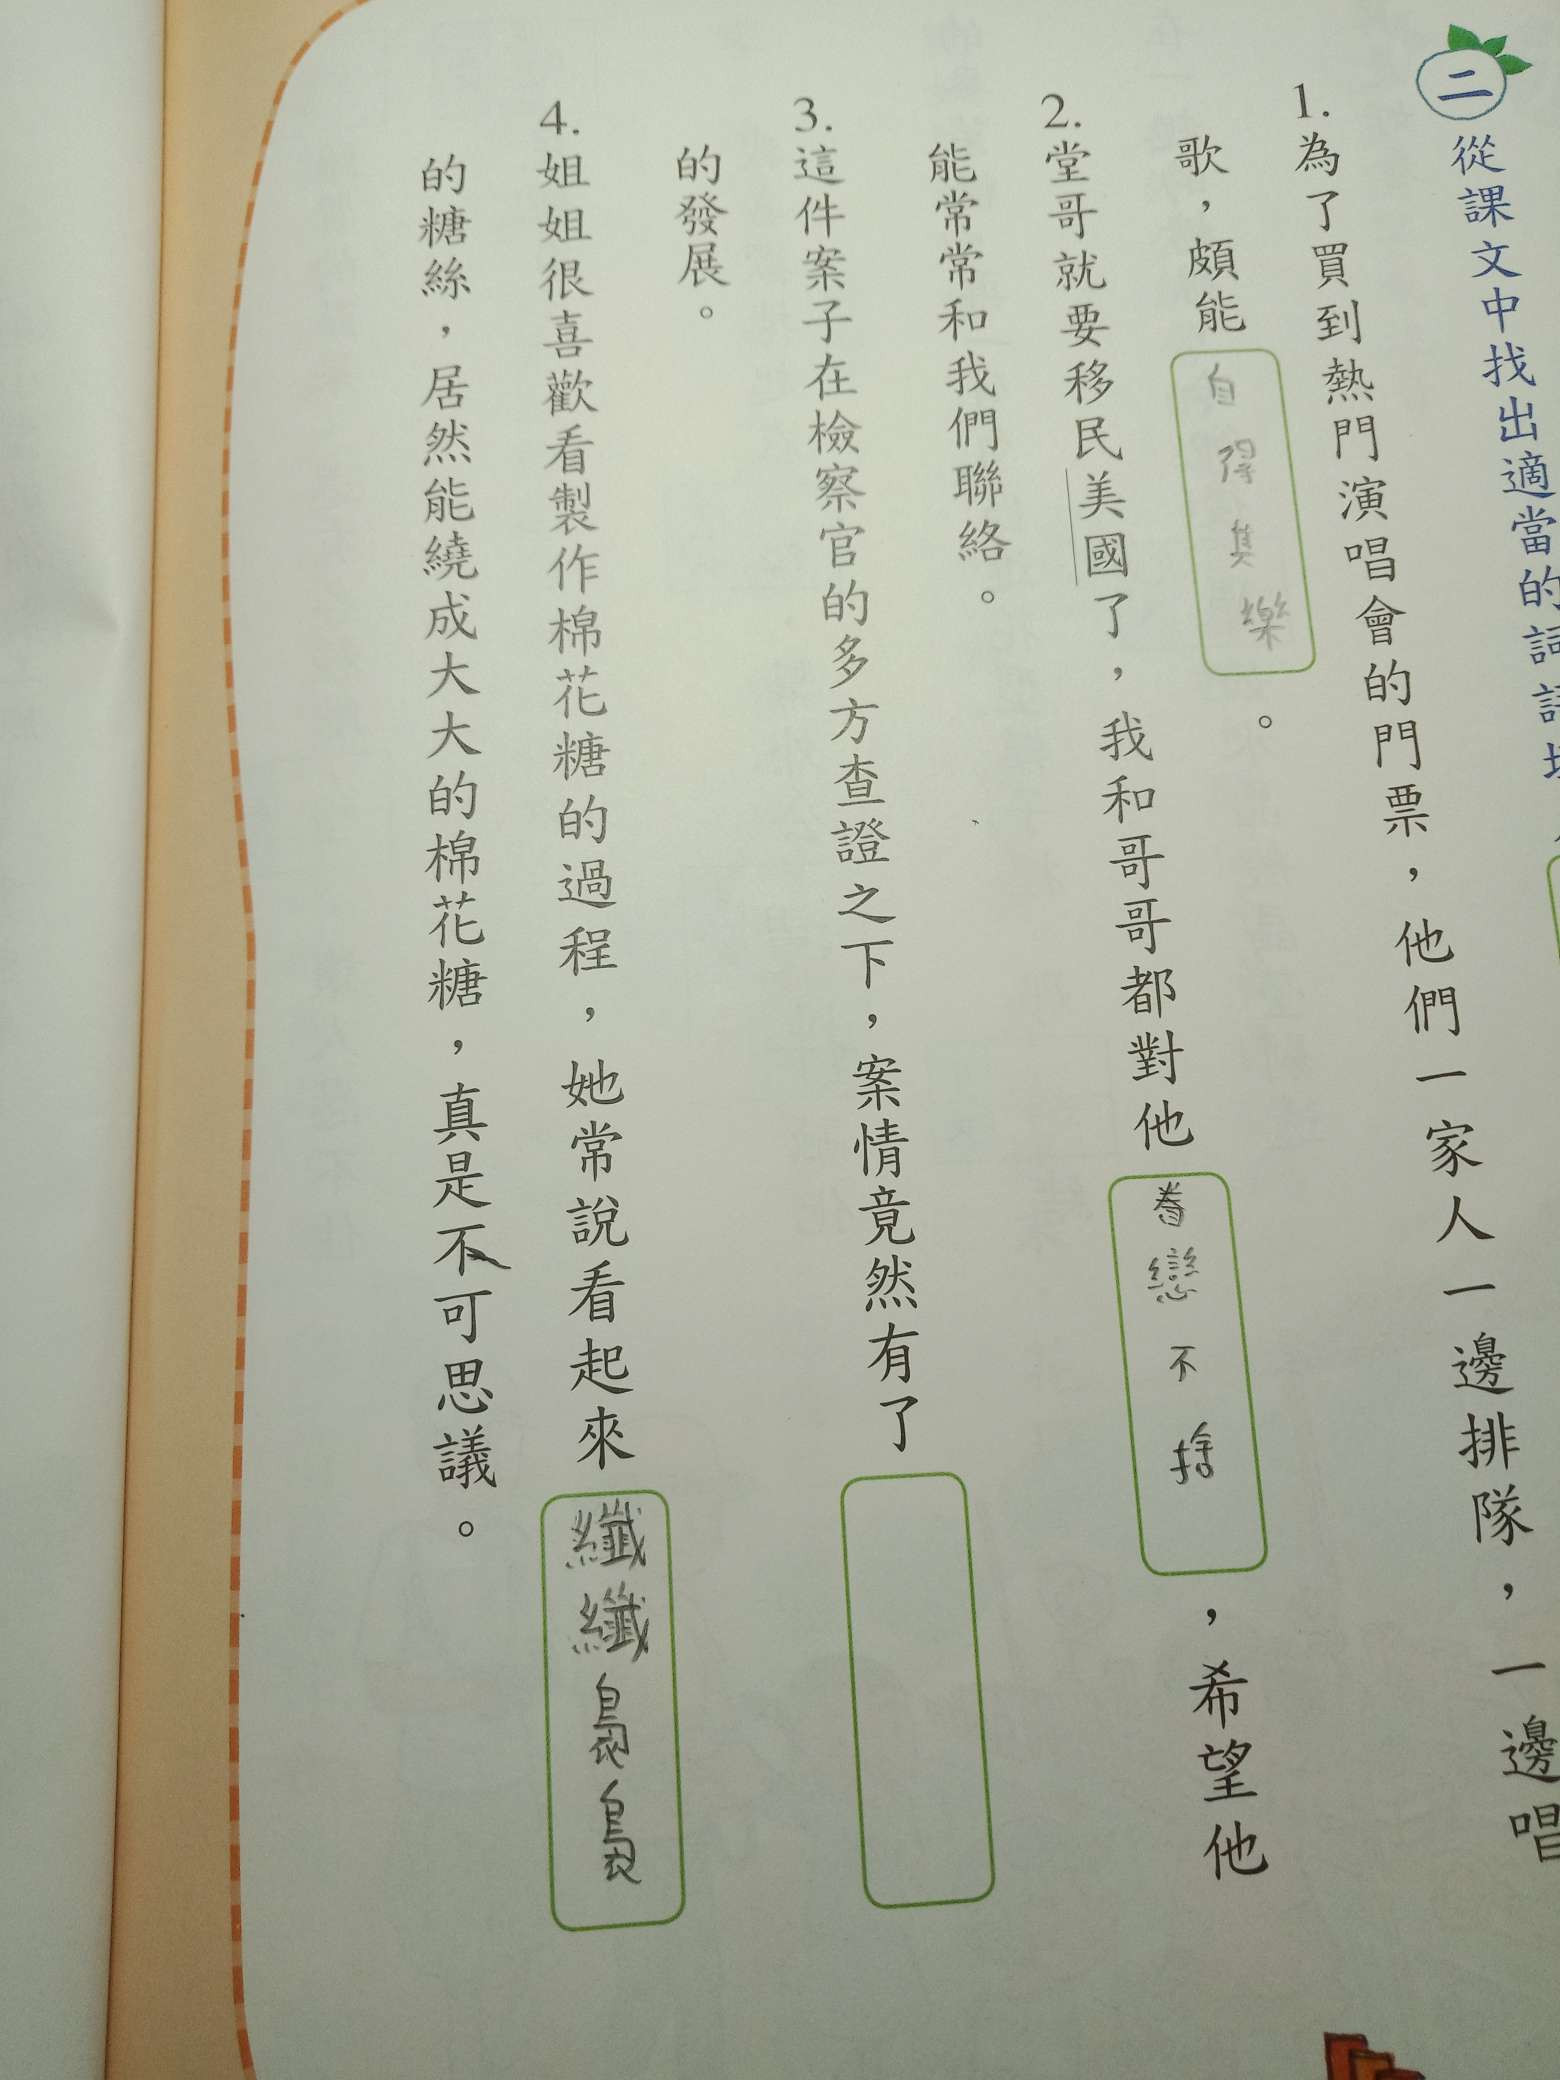 二 從課文中找出適當的詞語
1.為了買到熱門演唱會的門票，他們一家人一邊排隊，一邊唱
歌，頗能自得其樂。
2.堂哥就要移民美國了，我和哥哥都對他眷戀不捨，希望他
能常常和我們聯絡。
3.這件案子在檢察官的多方查證之下，案情竟然有了
的發展。
4.姐姐很喜歡看製作棉花糖的過程，她常說看起來纖纖裊裊
的糖絲，居然能繞成大大的棉花糖，真是不可思議。